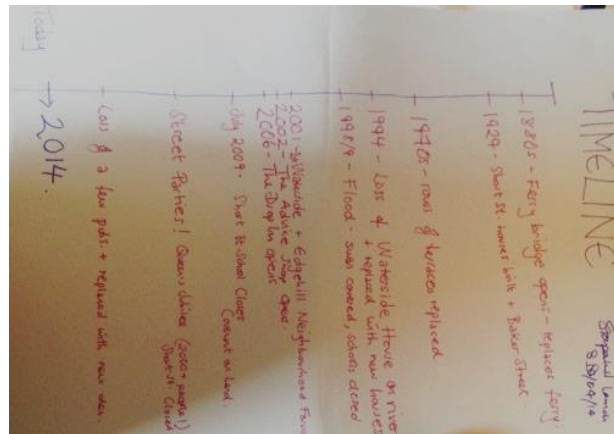 TIMELINE
1880s - Ferry bridge opens - replaces ferry.
1929 - Short St. houses built + Baker Street
1970s - rows of terraces replaced
1994 - Loss of Waterside House on river
+ replaced with new houses
1998/9 - Flood - swan covered, schools closed
2001 - Waterside + Edgehill Neighbourhood Forum
2002 - The Advice Shop opens
2006 - The Drop In opens
July 2009 - Short St. School Closes
Covenant on land.
Street Parties! Queens Jubilee (2000+ people!)
Short St. Closed
Loss of a few pubs + replaced with new
Today → 2014.